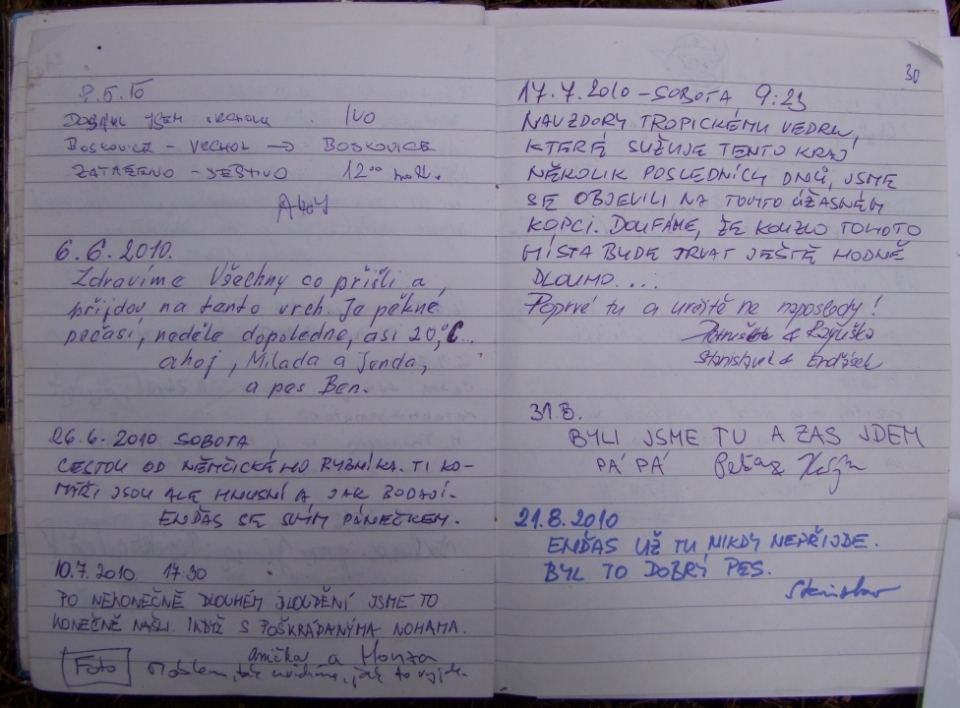 ?.5.10
JSEM IVO
BOSKOVICE - VRCHOL → BOSKOVICE
ZATAŽENO - DEŠTIVO 12⁰⁰ hod.
AHOJ
6.6.2010.
Zdravíme Všechny co přišli a,
přijdou na tento vrch. Je pěkné
počasí, neděle dopoledne, asi 20°C...
ahoj, Milada a Jenda,
a pes Ben.
26.6.2010 SOBOTA
CESTOU OD NĚMČICKÉHO RYBNÍKA. TI KO-
MÁŘI JSOU ALE HNUSNÍ A JAK BODAJÍ.
ENĎAS SE SVÝM PÁNEČKEM.
10.7.2010 17:30
PO NEKONEČNĚ DLOUHÉM BLOUDĚNÍ JSME TO
KONEČNĚ NAŠLI. IKDYŽ S POŠKRÁBANÝMA NOHAMA.
Anička a Honza
Foto problém, tak uvidíme, jak to vyjde.
30
17.7.2010 - SOBOTA 9:23
NAVZDORY TROPICKÉMU VEDRU,
KTERÉ SUŽUJE TENTO KRAJ
NĚKOLIK POSLEDNÍCH DNŮ, JSME
SE OBJEVILI NA TOMTO ÚŽASNÉM
KOPCI. DOUFÁME, ŽE KOUZLO TOHOTO
MÍSTA BUDE TRVAT JEŠTĚ HODNĚ
DLOUHO....
Poprvé tu a určitě ne naposledy!
&
Stanislav &
31.8.
BYLI JSME TU A ZAS JDEM
PÁ PÁ
21.8.2010
ENĎAS UŽ TU NIKDY NEPŘIJDE.
BYL TO DOBRÝ PES.
Stanislav